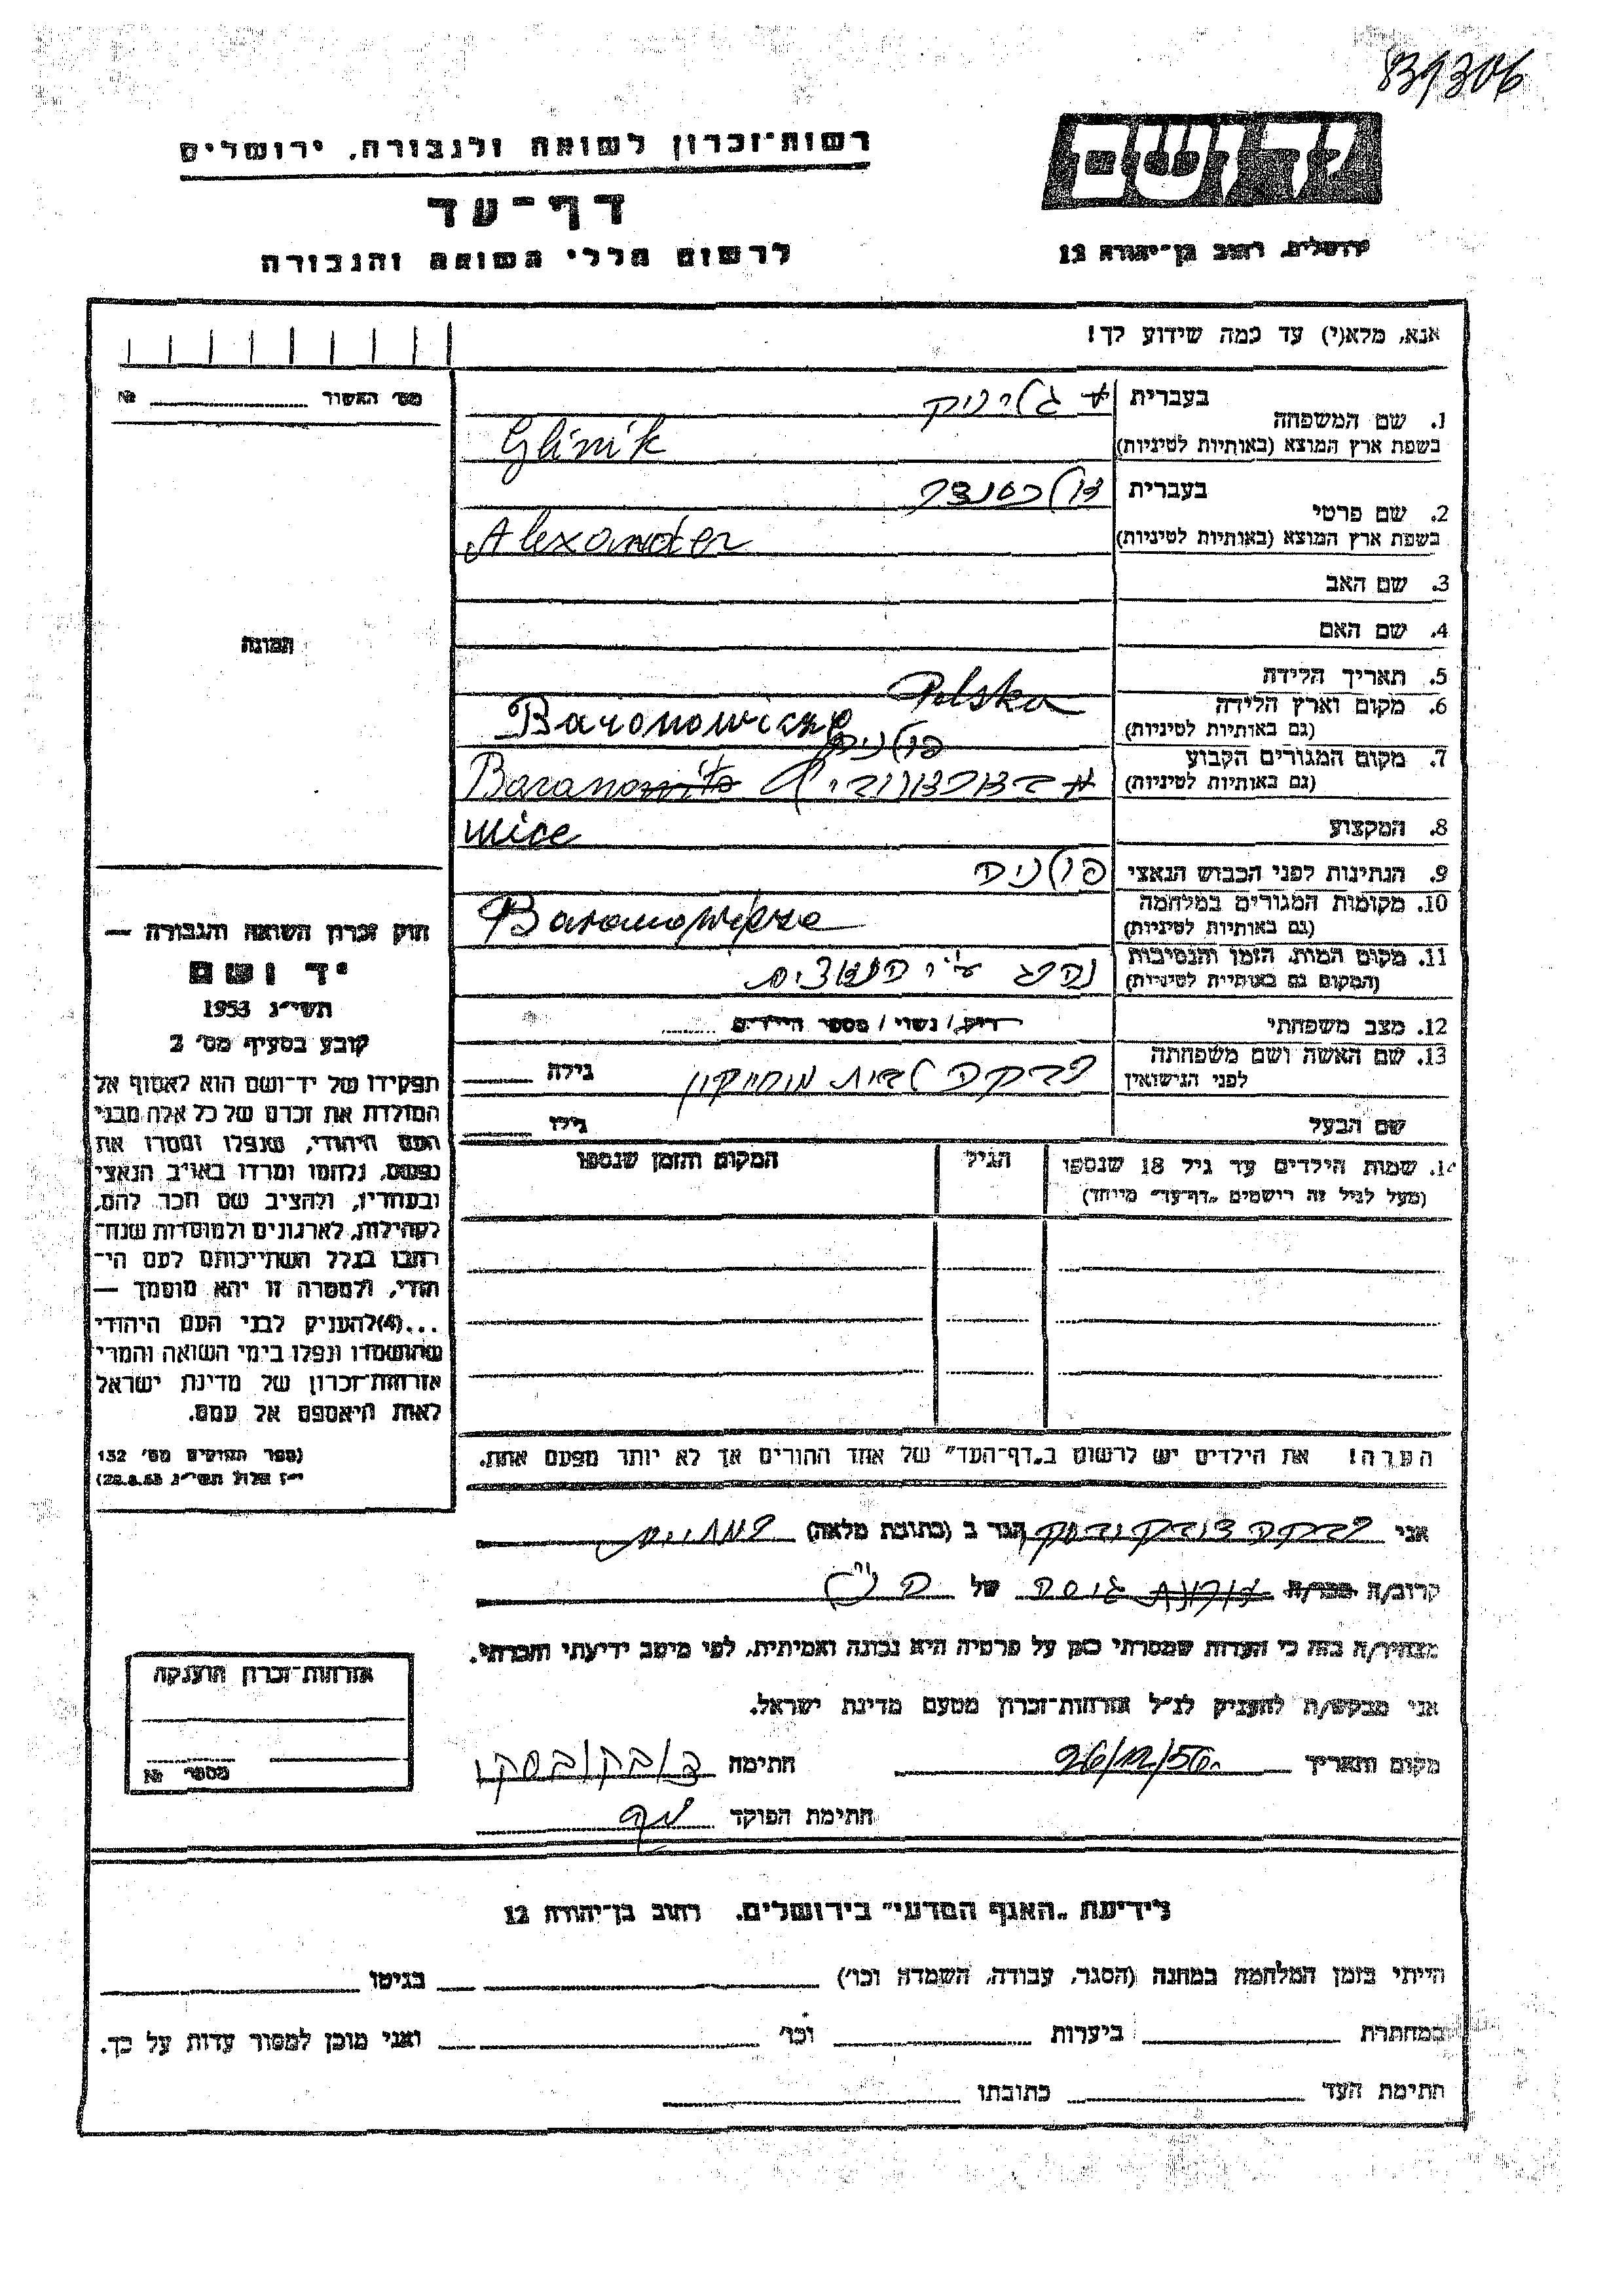 839306
רשות־זכרון לשואה ולגבורה, ירושלים
דף־עד
לרשום חללי השואה והגבורה
יד ושם
ירושלים, רחוב בן־יהודה 12
אנא, מלא(י) עד כמה שידוע לך!
מס׳ האשור № 
1. שם המשפחה
בעברית גליניק
בשפת ארץ המוצא (באותיות לטיניות) Glinik
2. שם פרטי
בעברית אלכסנדר
בשפת ארץ המוצא (באותיות לטיניות) Alexander
3. שם האב
4. שם האם
5. תאריך הלידה
6. מקום וארץ הלידה
(גם באותיות לטיניות) Baronowicze Polska
פולנים
7. מקום המגורים הקבוע
(גם באותיות לטיניות) Barano
wice
8. המקצוע
9. הנתינות לפני הכבוש הנאצי פולנית
10. מקומות המגורים במלחמה
(גם באותיות לטיניות) Baranowicze
11. מקום המות, הזמן והנסיבות
(המקום גם באותיות לטיניות) נהרג ע״י הנאצים
12. מצב משפחתי רווק / נשוי / מספר הילדים
13. שם האשה ושם משפחתה
לפני הנישואין לבית גילה
שם הבעל גילו
14. שמות הילדים עד גיל 18 שנספו
(מעל לגיל זה רושמים „דף־עד״ מיוחד)
הגיל
המקום והזמן שנספו
הערה! את הילדים יש לרשום ב„דף־העד״ של אחד ההורים אך לא יותר מפעם אחת.
תמונה
חוק זכרון השואה והגבורה —
יד ושם
תשי״ג 1953
קובע בסעיף מס׳ 2
תפקידו של יד־ושם הוא לאסוף אל
המולדת את זכרם של כל אלה מבני
העם היהודי, שנפלו ומסרו את
נפשם, נלחמו ומרדו באויב הנאצי
ובעוזריו, ולהציב שם וזכר להם,
לקהילות, לארגונים ולמוסדות שנח־
רבו בגלל השתייכותם לעם הי־
הודי, ולמטרה זו יהא מוסמך —
...(4)להעניק לבני העם היהודי
שהושמדו ונפלו בימי השואה והמרי
אזרחות־זכרון של מדינת ישראל
לאות היאספם אל עמם.
(ספר החוקים מס׳ 132
י״ז אלול תשי״ג 28.8.53)
אני הגר ב (כתובת מלאה)
קרוב/ה מכר/ה גיסה של הנ״ל
מצהיר/ה בזה כי העדות שמסרתי כאן על פרטיה היא נכונה ואמיתית, לפי מיטב ידיעתי והכרתי.
אני מבקש/ת להעניק לנ״ל אזרחות־זכרון מטעם מדינת ישראל.
מקום ותאריך 26/12/56 חתימה
חתימת הפוקד
אזרחות־זכרון הוענקה
מספר №
לידיעת „האגף המדעי״ בירושלים, רחוב בן־יהודה 12
הייתי בזמן המלחמה במחנה (הסגר, עבודה, השמדה וכו׳) בגיטו
במחתרת ביערות וכו׳ ואני מוכן למסור עדות על כך.
חתימת העד כתובתו